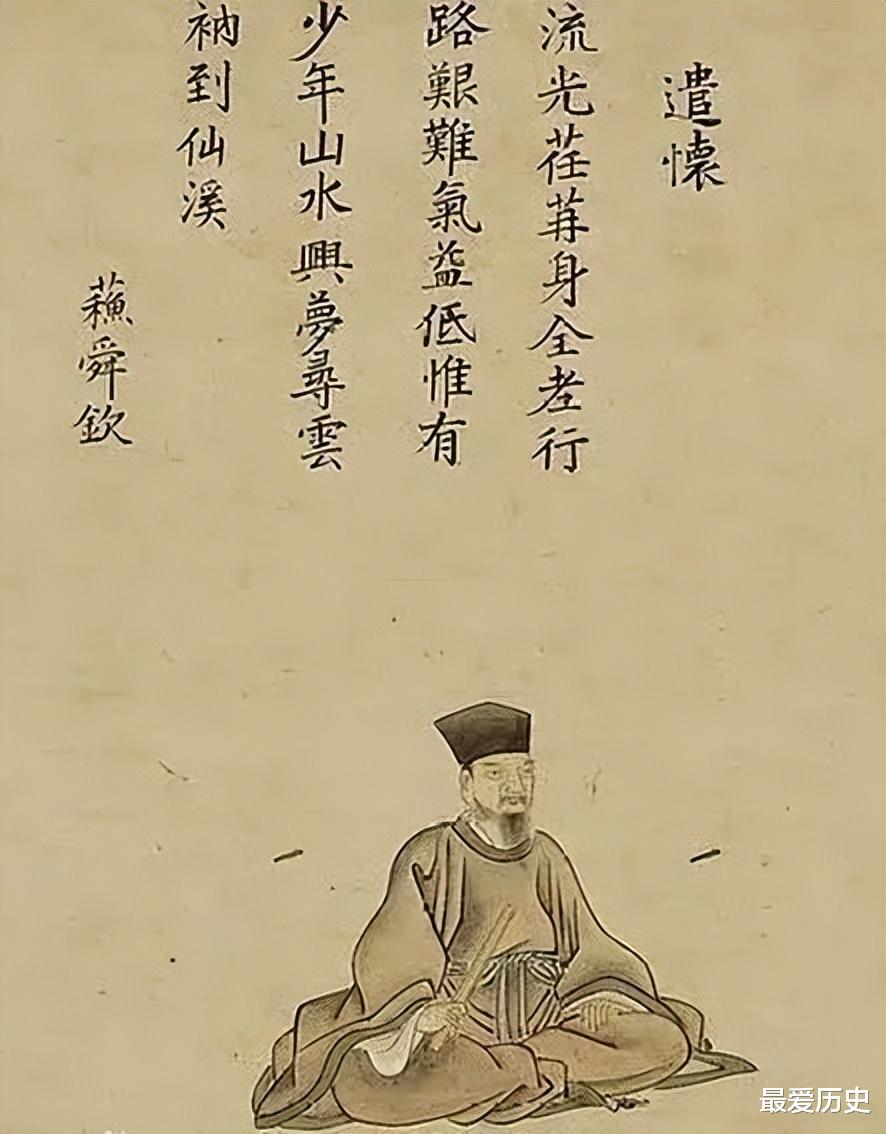 遣懷
流光荏苒身全老行
路艱難氣益低惟有
少年山水興夢尋雲
衲到仙溪
蘇舜欽
最爱历史